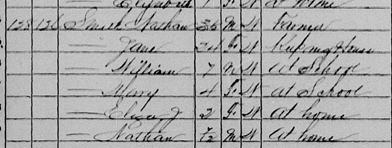 Elizabeth 1 F W at home
128 136 Smith Nathan 36 M W Farmer
— Jane 24 F W Keeping House
— William 7 M W At School
— Mary 4 F W At School
— Eliza J 2 F W At home
— Nathan 1/2 M W At home